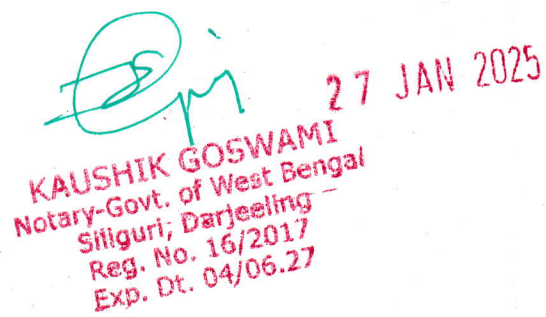 27 JAN 2025
KAUSHIK GOSWAMI
Notary-Govt. of West Bengal
Siliguri, Darjeeling
Reg. No. 16/2017
Exp. Dt. 04/06.27